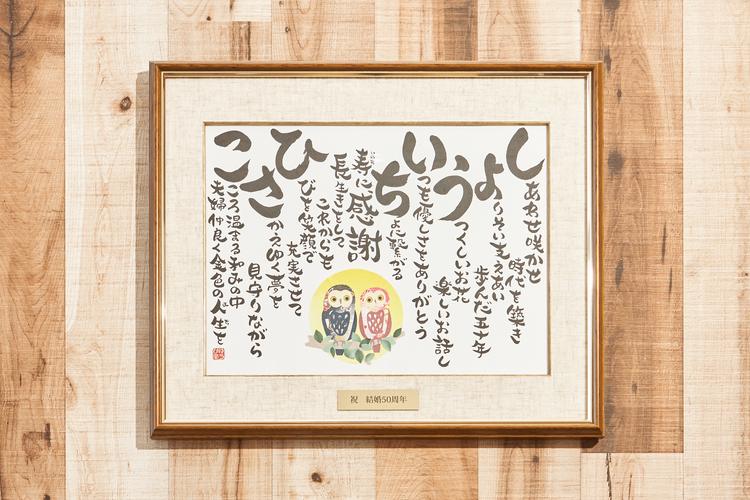 しあわせ咲かせ
時代を築き
よりそい支えあい
歩んだ五十年
うつくしいお花
楽しいお話し
いつも優しさをありがとう
ちよに繋がる
寿に、感謝
長生きをして
これからも
ひびを笑顔で
充実させて
さかえゆく夢を
見守りながら
こころ温まる和みの中
夫婦仲良く金色の人生を
祝 結婚50周年